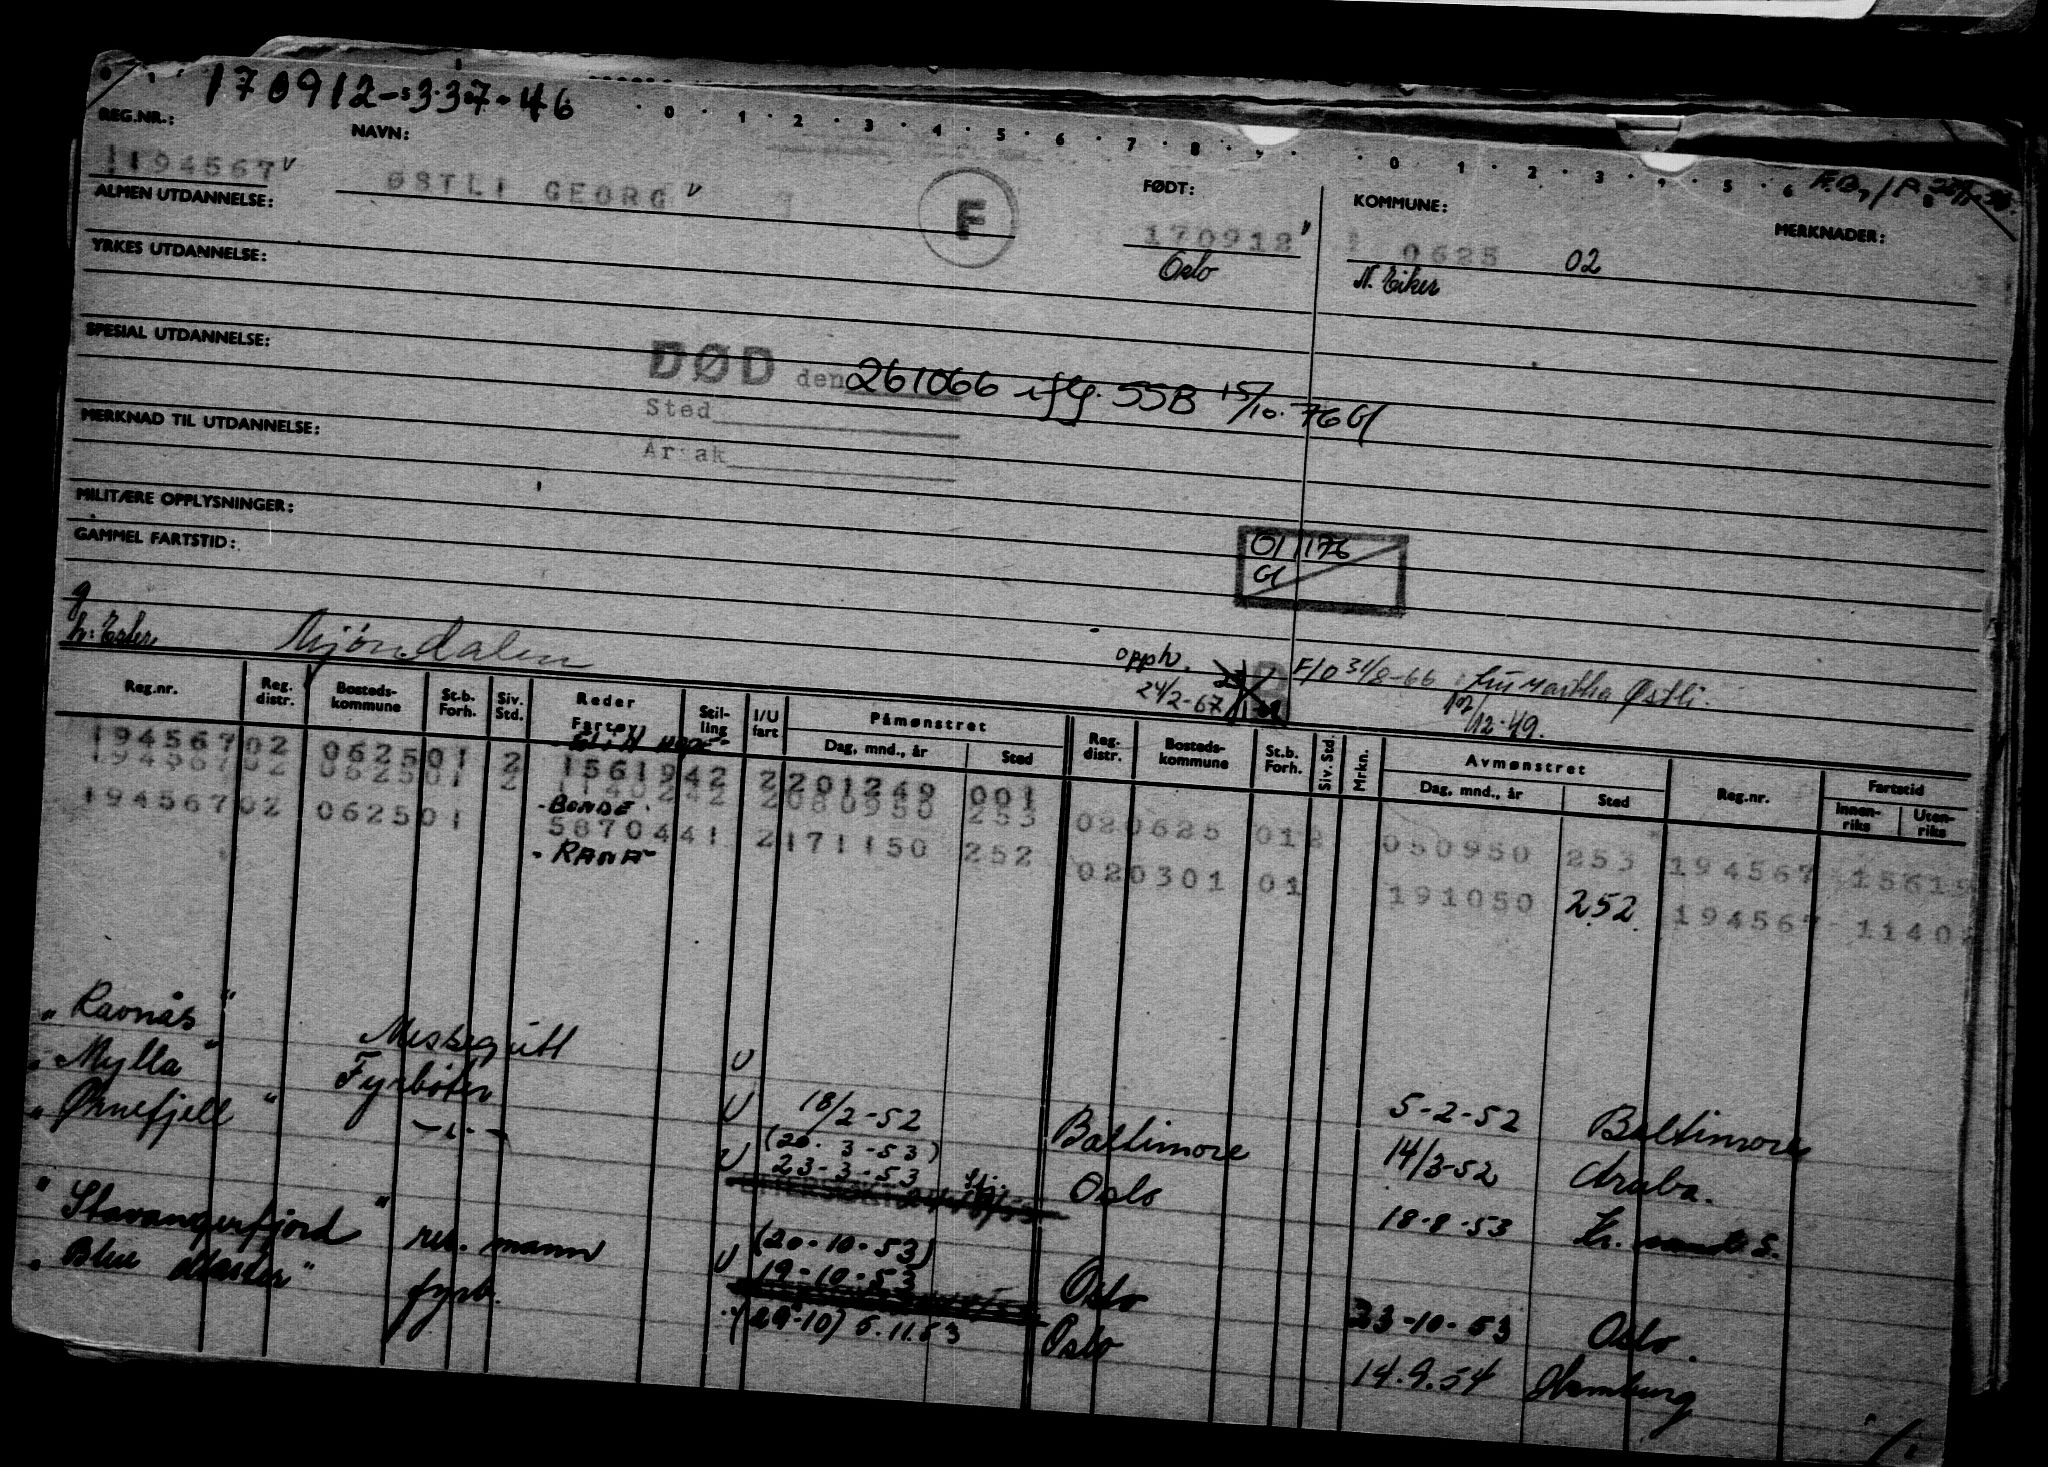 170912-33746
0 · 1 · 2 · 3 · 4 · 5 · 6 · 7 · 8 · 0 · 1 · 2 · 3 · 5 · 6
REG.NR.: NAVN: FØDT: KOMMUNE: MERKNADER:
1194567 v ØSTLI GEORG v F 170912 v 0625 02
Oslo N. Eiker
ALMEN UTDANNELSE:
YRKES UTDANNELSE:
SPESIAL UTDANNELSE:
DØD den 261066 iflg. SSB 15/10.76 Gl
Sted
MERKNAD TIL UTDANNELSE:
Arsak
MILITÆRE OPPLYSNINGER:
GAMMEL FARTSTID:
01 1176
Gl
Mjøndalen
opph. F/O 31/8-66 : fru Martha Østli.
24/2-67 12/12-49.
Reg.nr. Reg. distr. Bosteds- kommune St.b. Forh. Siv. Std. Reder Fartøy Stil- ling I/U fart Påmønstret Dag, mnd., år Sted Reg. distr. Bosteds- kommune St.b. Forh. Siv. Std. Mrkn. Avmønstret Dag, mnd., år Sted Reg.nr. Fartstid Innen- riks Uten- riks
194567 02 0625 01 2 15619 42 2 201249 001
194567 02 0625 01 2 11402 42 2 080950 253
- BONDE - 020625 01 2 050950 253 194567 15619
194567 02 0625 01 58704 41 2 171150 252
- RANA - 020301 01 191050 252 194567 1140
" Ravnås " Messegutt U 5-2-52 Baltimore
" Mylla " Fyrbøter U 18/2-52 Baltimore 14/3-52 Aruba.
" Ørnefjell " -"- U (20. 3-53) 23-3-53 Oslo 18-8-53 Kr. sand S.
" Stavangerfjord " res. mann U (20-10-53) 19-10-53 Oslo 23-10-53 Oslo.
" Blue Master " fyrb. (29-10) 5.11.53 Oslo 14.9.54 Hamburg